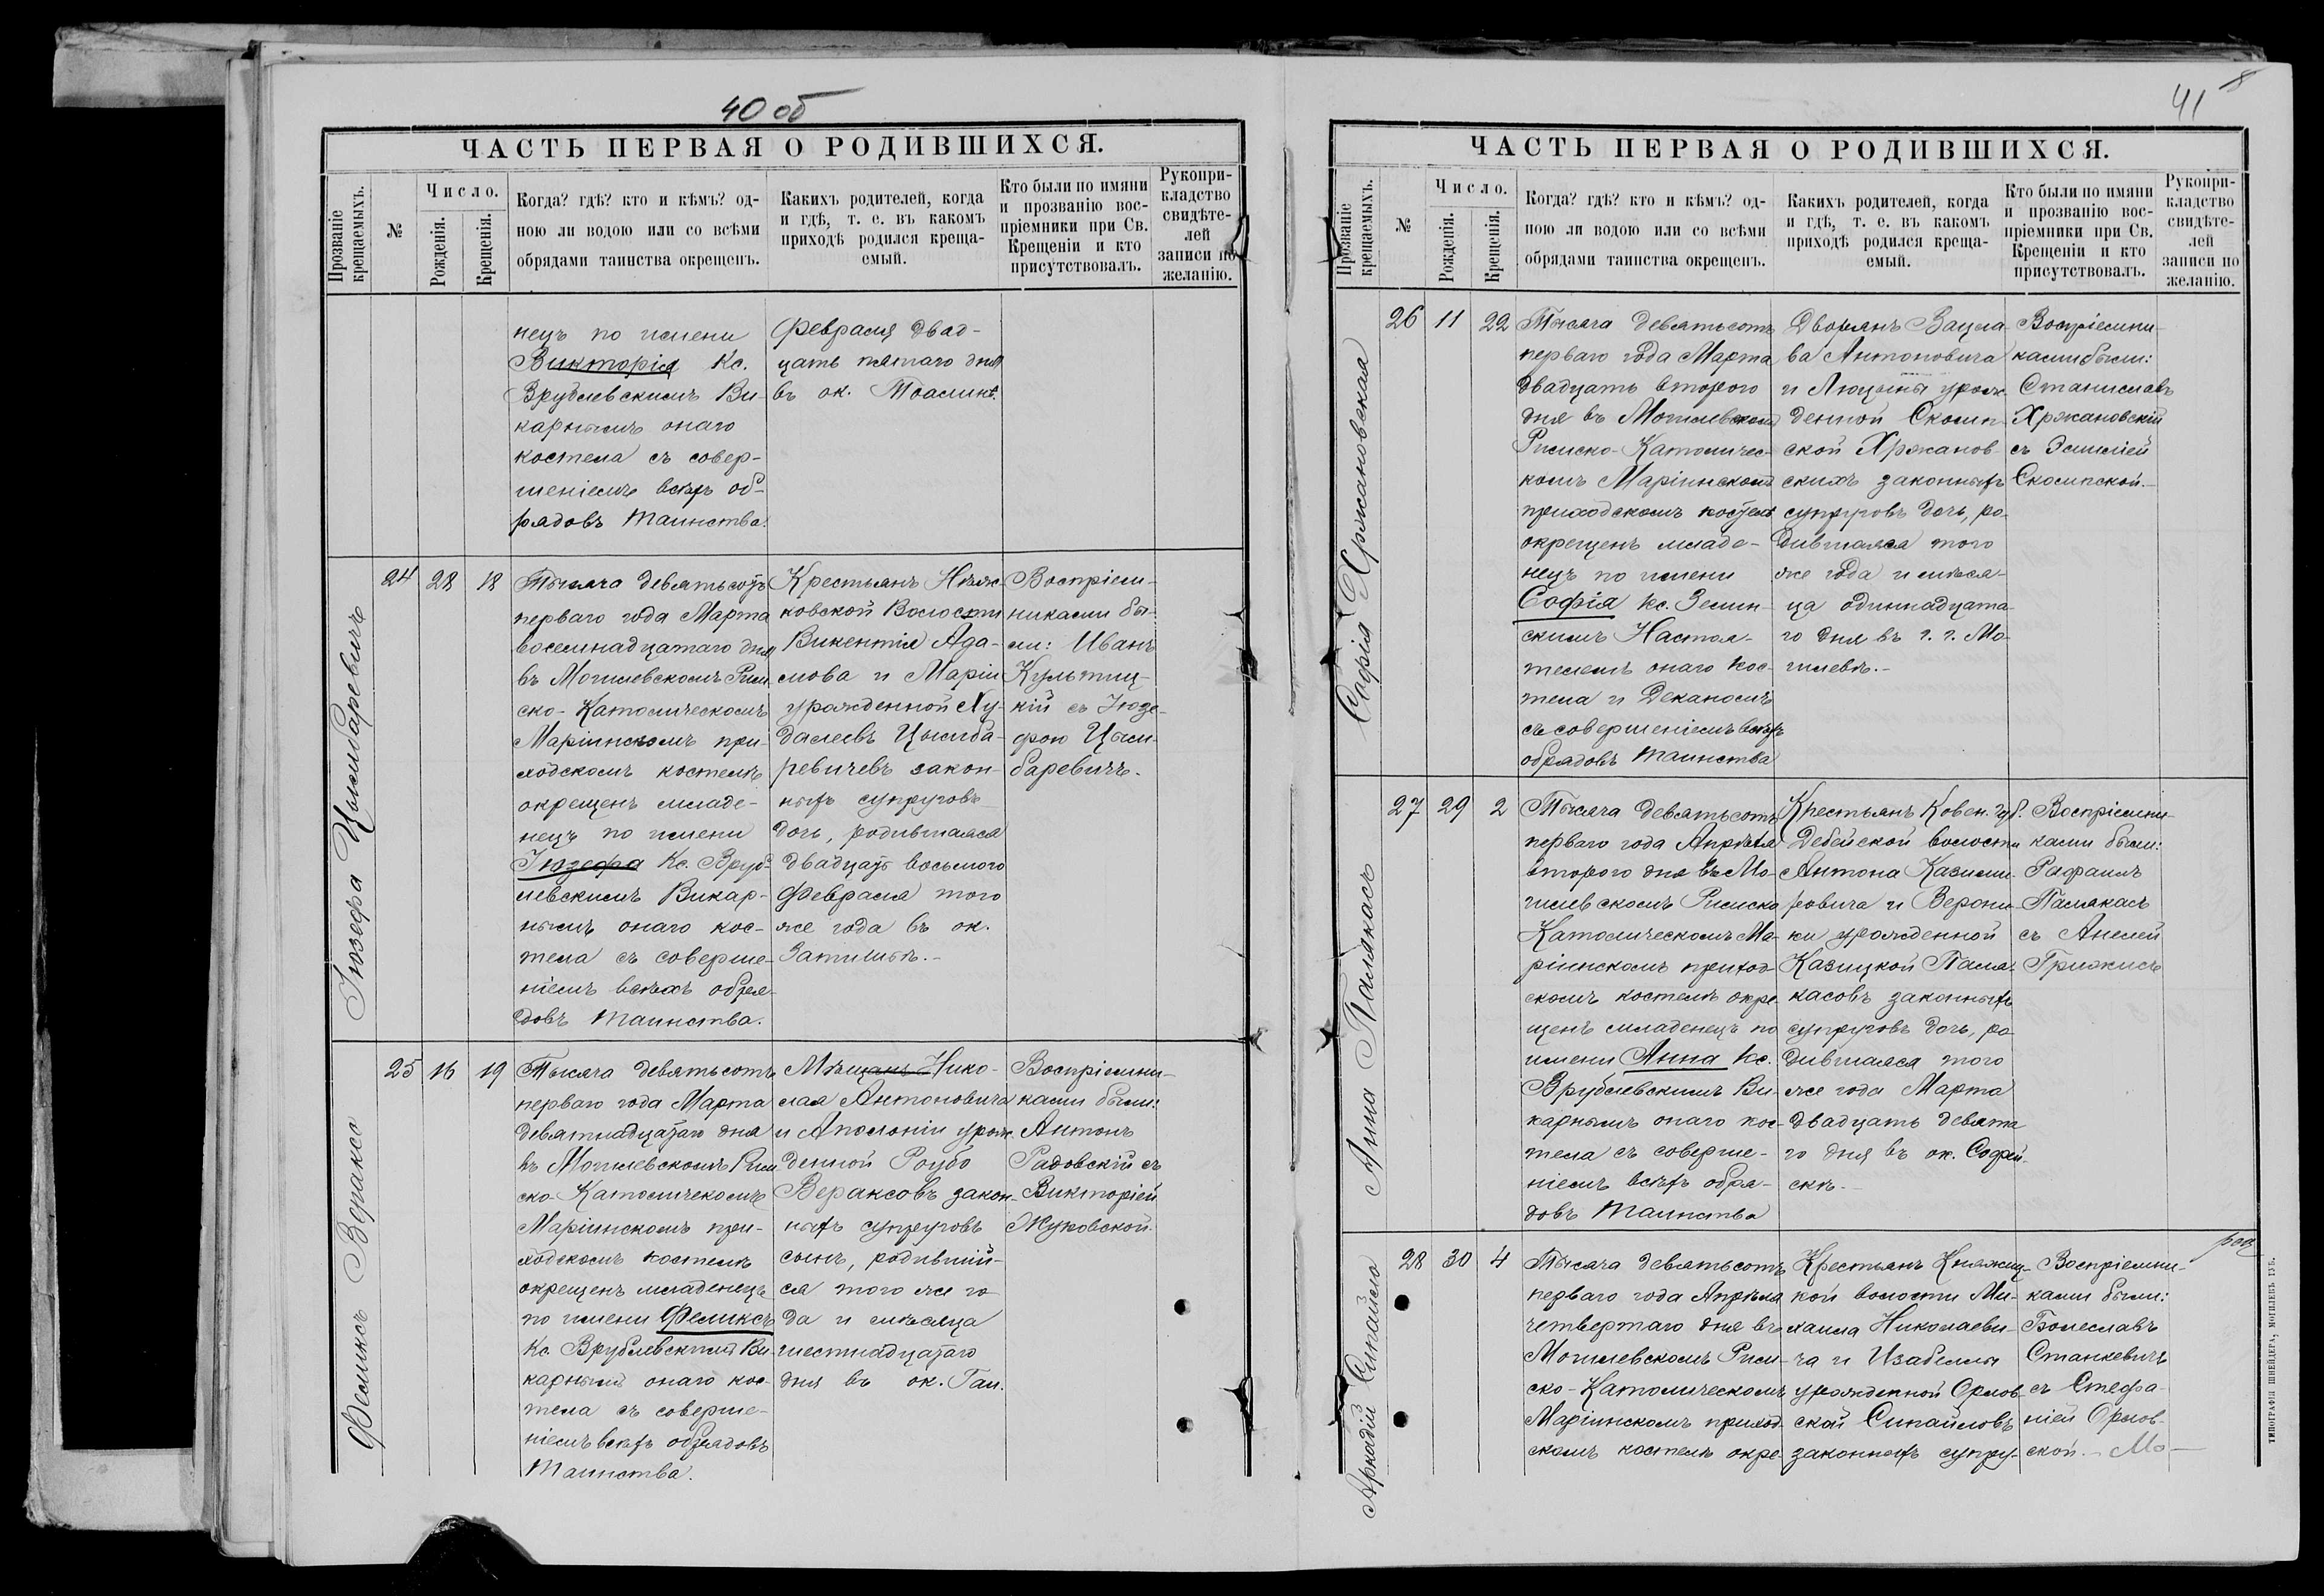 40 об
ЧАСТЬ ПЕРВАЯ О РОДИВШИХСЯ.
Прозваніе крещаемыхъ.
№
Число.
Рожденія.
Крещенія.
Когда? гдѣ? кто и кѣмъ? од-
ною ли водою или со всѣми
обрядами таинства окрещенъ.
Какихъ родителей, когда
и гдѣ, т. е. въ какомъ
приходѣ родился креща-
емый.
Кто были по имяни
и прозванію вос-
пріемники при Св.
Крещеніи и кто
присутствовалъ.
Рукопри-
кладство
свидѣте-
лей
записи по
желанію.
нецъ по имени
Викторія Кс.
Врублевскимъ Ви-
карнымъ онаго
костела съ совер-
шеніемъ всѣхъ об-
рядовъ Таинства.
Февраля двад-
цать пятаго дня
въ ок.
Іюзефа Цымбаревичъ
24
28
18
Тысяча девятьсотъ
перваго года Марта
восемнадцатаго дня
въ Могилевскомъ Рим-
ско-Католическомъ
Маріинскомъ при-
ходскомъ костелѣ
окрещенъ младе-
нецъ по имени
Іюзефа Кс. Вруб-
левскимъ Викар-
нымъ онаго кос-
тела съ соверше-
ніемъ всѣхъ обря-
довъ Таинства.
Крестьянъ Няж-
ковской Волости
Викентія Ада-
мова и Маріи
урожденной Ху-
далеевъ Цымба-
ревичевъ закон-
ныхъ супруговъ
дочь, родившаяся
двадцать восьмого
Февраля того
же года въ ок.
Затишьѣ.-
Воспріем-
никами бы-
ли: Иванъ
Культиц-
кій съ Іюзе-
фою Цым-
баревичъ.
Феликсъ Веракса
25
16
19
Тысяча девятьсотъ
перваго года Марта
девятнадцатаго дня
въ Могилевскомъ Рим-
ско-Католичекомъ
Маріинскомъ при-
ходскомъ костелѣ
окрещенъ младенецъ
по имени Феликсъ
Кс. Врублевскимъ Ви-
карнымъ онаго кос-
тела съ соверше-
ніемъ всѣхъ обрядовъ
Таинства.
Мѣщанъ Нико-
лая Антоновича
и Аполоніи урож-
денной Роубо
Вераксовъ закон-
ныхъ супруговъ
сынъ, родивший-
ся того же го
да и мѣсяца
шестнадцатаго
дня въ ок. Гаи.
Воспріемни-
ками были:
Антонъ
Радовскій съ
Викторіей
Жуковской.
41
ЧАСТЬ ПЕРВАЯ О РОДИВШИХСЯ.
Прозваніе крещаемыхъ.
№
Число.
Рожденія.
Крещенія.
Когда? гдѣ? кто и кѣмъ? од-
ною ли водою или со всѣми
обрядами таинства окрещенъ.
Какихъ родителей, когда
и гдѣ, т. е. въ какомъ
приходѣ родился креща-
емый.
Кто были по имяни
и прозванію вос-
пріемники при Св.
Крещеніи и кто
присутствовалъ.
Рукопри-
кладство
свидѣте-
лей
записи по
желанію.
Софія Хржановская
26
11
22
Тысяча девятьсотъ
перваго года Марта
двадцать второго
дня въ Могилевскомъ
Римско-Католичес-
комъ Маріинскомъ
приходскомъ костелѣ
окрещенъ младе-
нецъ по имени
Софія Кс. Земин-
скимъ Настоя-
телемъ онаго Кос-
тела и Деканомъ
съ совершеніемъ всѣхъ
обрядовъ Таинства
Дворянъ Вацла-
ва Антоновича
и Люцыны урож-
денной Скомп-
ской Хржанов-
скихъ законныхъ
супруговъ дочь, ро-
дившаяся того
же года и мѣся-
ца одиннадцата-
го дня въ г. г. Мо-
гилевѣ.-
Воспріемни-
ками были:
Станиславъ
Хржановскій
съ Эмиліей
Скомпской.-
Анна Палякасъ
27
29
2
Тысяча девятьсотъ
перваго года Апрѣля
второго дня въ Мо-
гилевскомъ Римско
Католическомъ Ма-
ріинскомъ приход-
скомъ костелѣ окре-
щенъ младенецъ по
имени Анна Кс.
Врублевскимъ Ви-
карнымъ онаго кос-
тела съ соверше-
ніемъ всѣхъ обря-
довъ Таинства
Крестьянъ Ковен. губ.
Дебейской волости
Антона Казими-
ровича и Верони-
ки урожденной
Казицкой Паля-
касовъ законныхъ
супруговъ дочь, ро
дившаяся того
же года Марта
двадцать девята
го дня въ ок. Софій-
скѣ.-
Воспріемни-
ками были:
Рафаилъ
Палякасъ
съ Анелей
Грижисъ
Аркадій Сипайло
28
30
4
Тысяча девятьсотъ
перваго года Апрѣля
четвертаго дня въ
Могилевскомъ Рим-
ско-Католическомъ
Маріинскомъ приход-
скомъ костелѣ окре-
Крестьянъ Княжиц-
кой волости Ми-
хаила Николаеви-
ча и Изабеллы
урожденной Орлов-
ской Сипайловъ
законныхъ супру-
Воспріемни-
ками были:
Болеславъ
Станкевичъ
съ Стефа-
ніей Орлов-
ской.-
ТИПОГРАФІЯ ШНЕЙДЕРА, МОГИЛЕВЪ ГУБ.